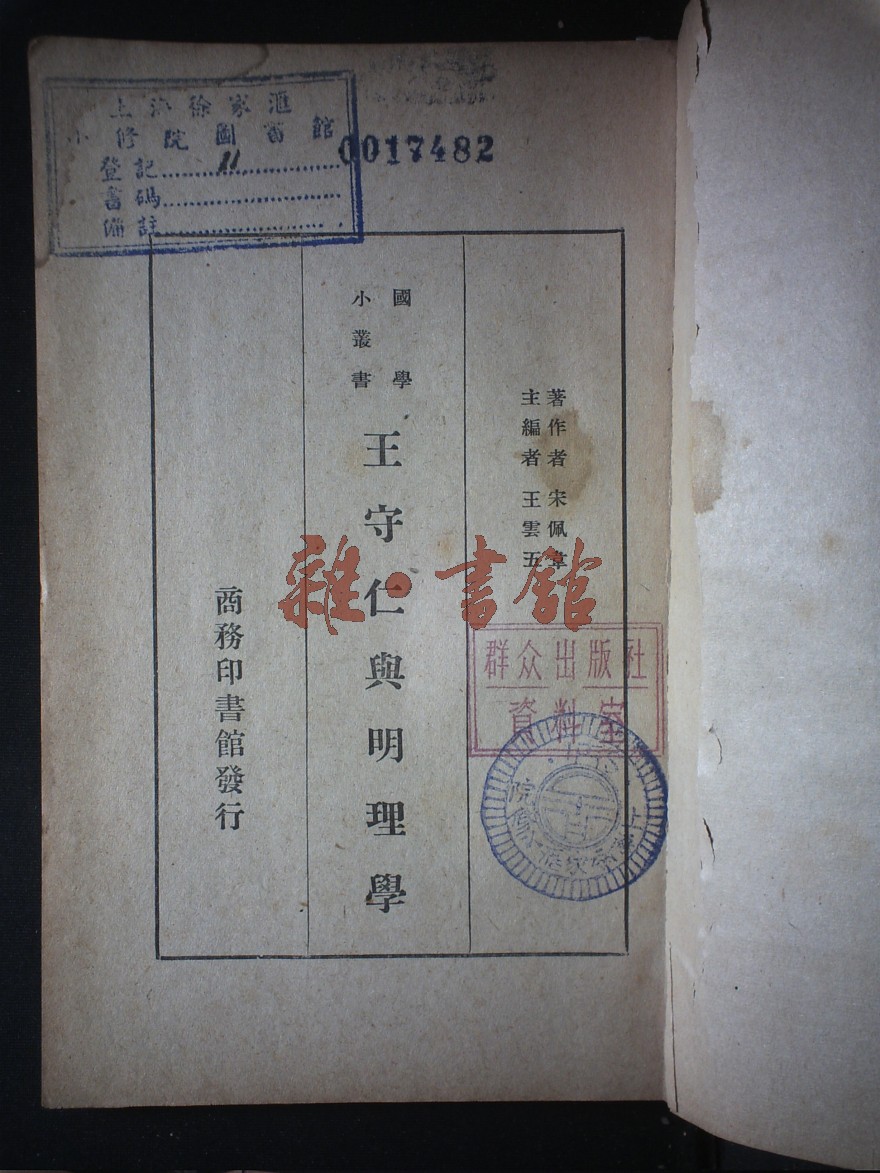 上海徐家滙
小修院圖書館
登記 11
書碼
備註
0017482
著作者 宋佩韋
主編者 王雲五
國學
小叢書
王守仁與明理學
商務印書館發行
雜·書館
群众出版社
資料室